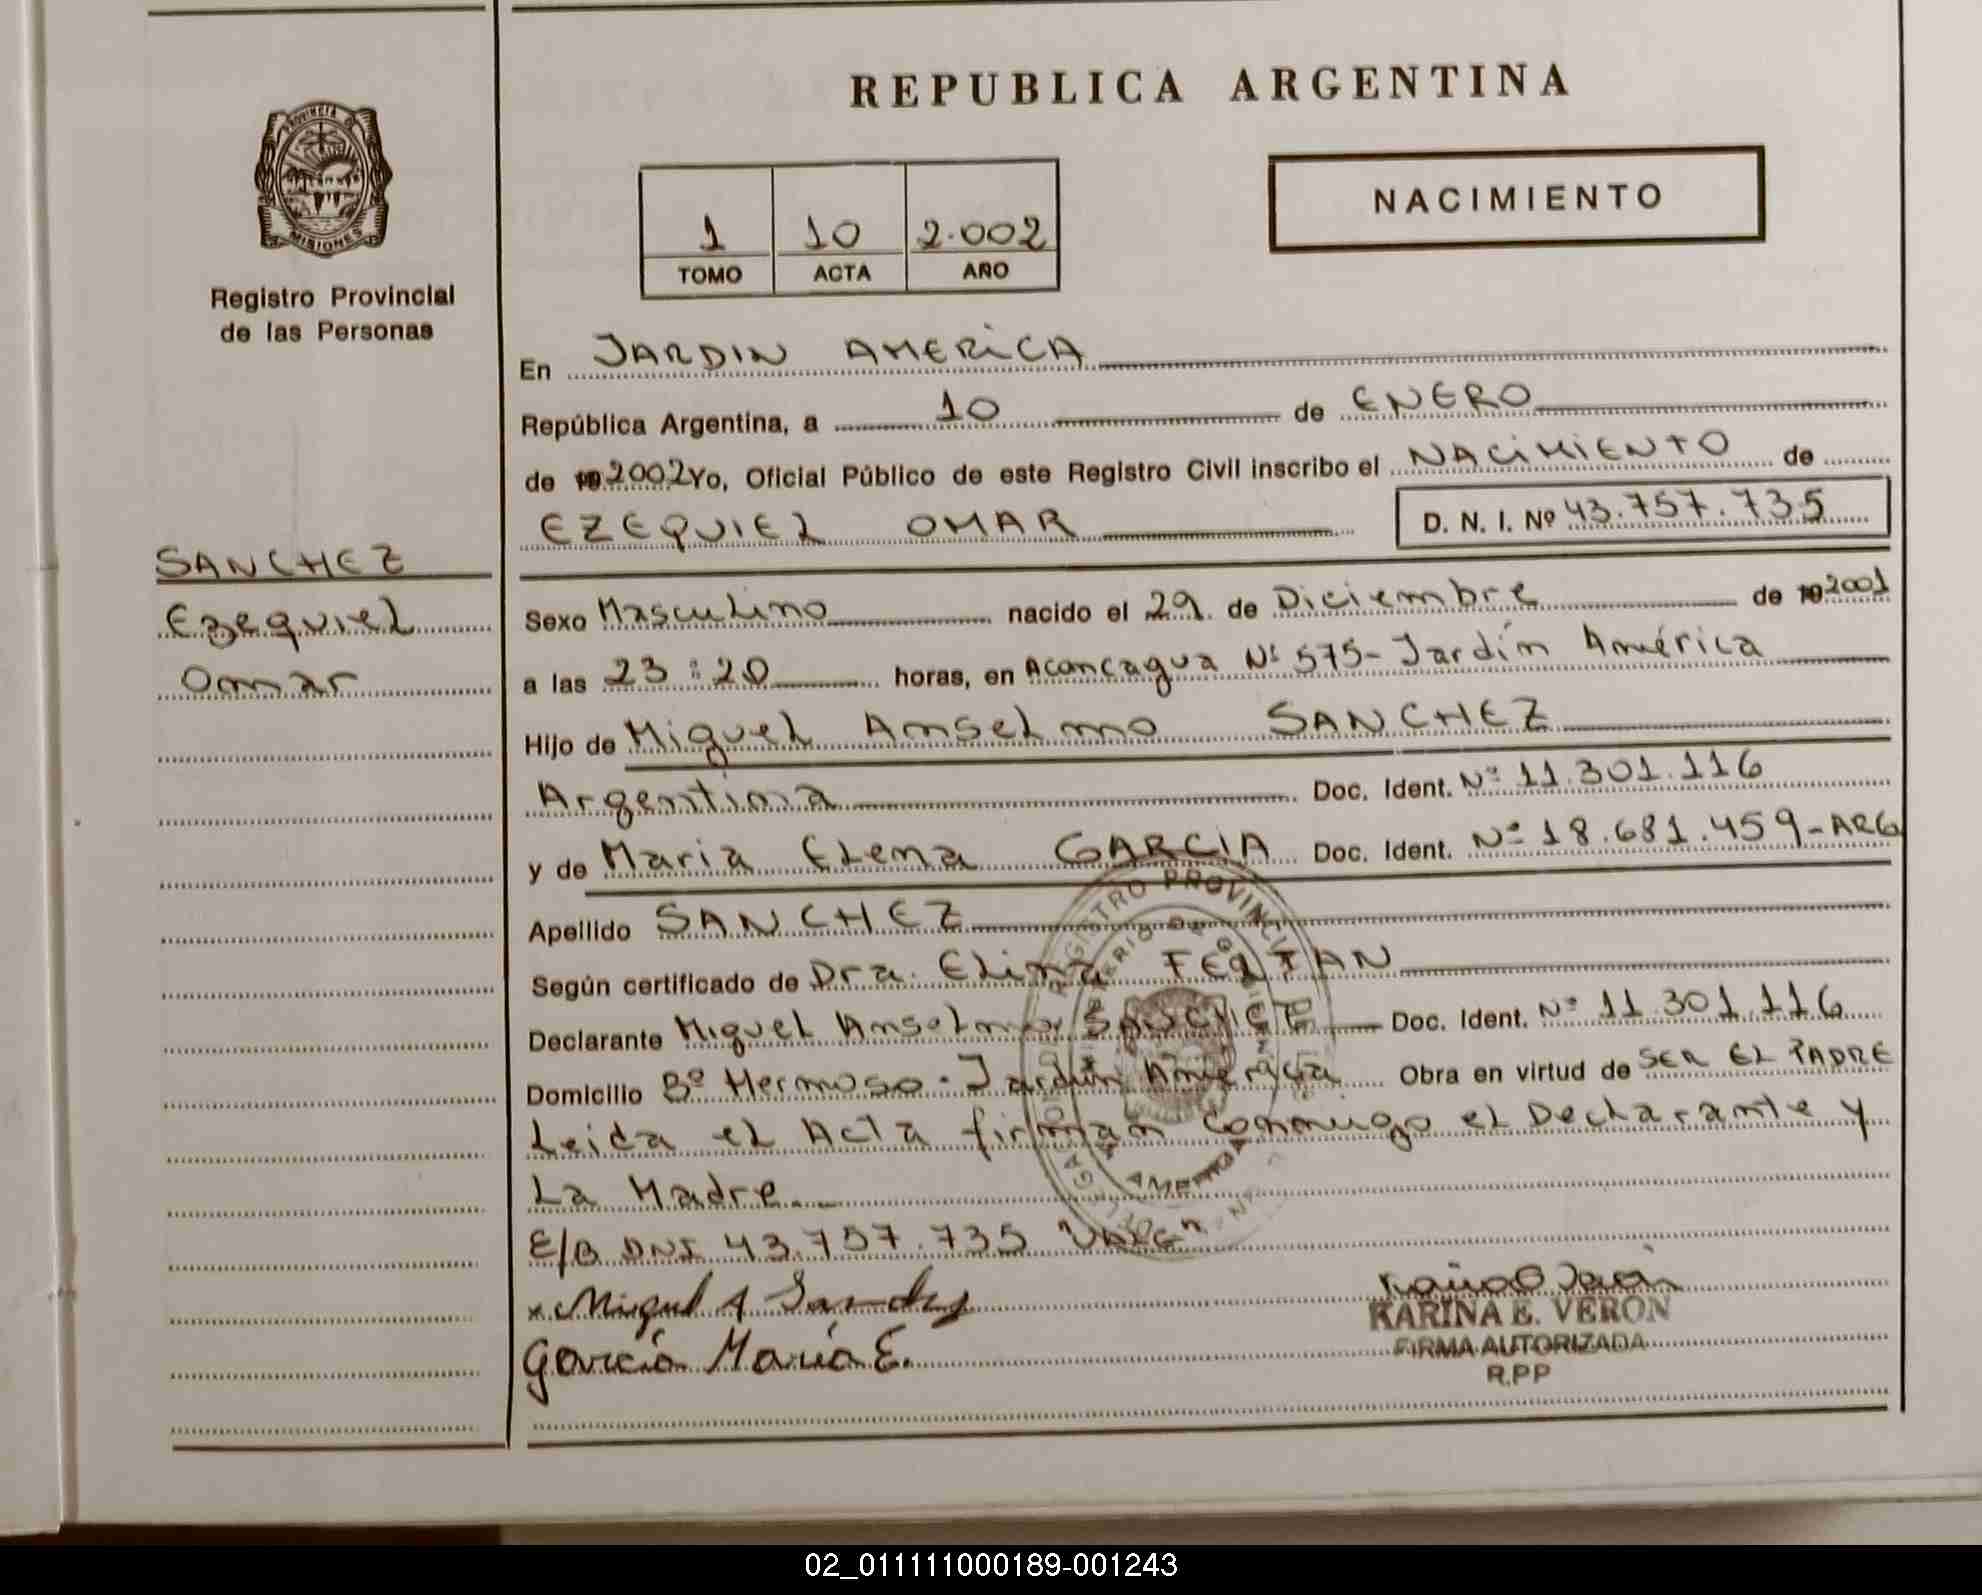 REPUBLICA ARGENTINA
PROVINCIA DE
MISIONES
Registro Provincial
de las Personas
1 10 2.002
TOMO ACTA AÑO
NACIMIENTO
En JARDIN AMERICA
República Argentina, a 10 de ENERO
de 192002 Yo, Oficial Público de este Registro Civil inscribo el NACIMIENTO de
EZEQUIEL OMAR D. N. I. Nº 43.757.735
SANCHEZ
Ezequiel
Omar
Sexo Masculino nacido el 29 de Diciembre de 192001
a las 23:20 horas, en Aconcagua Nº 575- Jardín América
Hijo de Miguel Anselmo SANCHEZ
Argentina Doc. Ident. Nº 11.301.116
y de Maria Elena GARCIA Doc. Ident. Nº 18.681.459-ARG
Apellido SANCHEZ
Según certificado de Dra. Elina
Declarante Miguel Anselmo SANCHEZ Doc. Ident. Nº 11.301.116
Domicilio Bº Hermoso - Jardín América Obra en virtud de SER EL PADRE
Leida el Acta firman conmigo el Declarante y
La Madre.
E/B DNI 43.757.735 "VALE"
x Miguel A Sanchez
Garcia María E.
KARINA E. VERON
FIRMA AUTORIZADA
R.P.P
REGISTRO PROVINCIAL
AMERICA
02_011111000189-001243